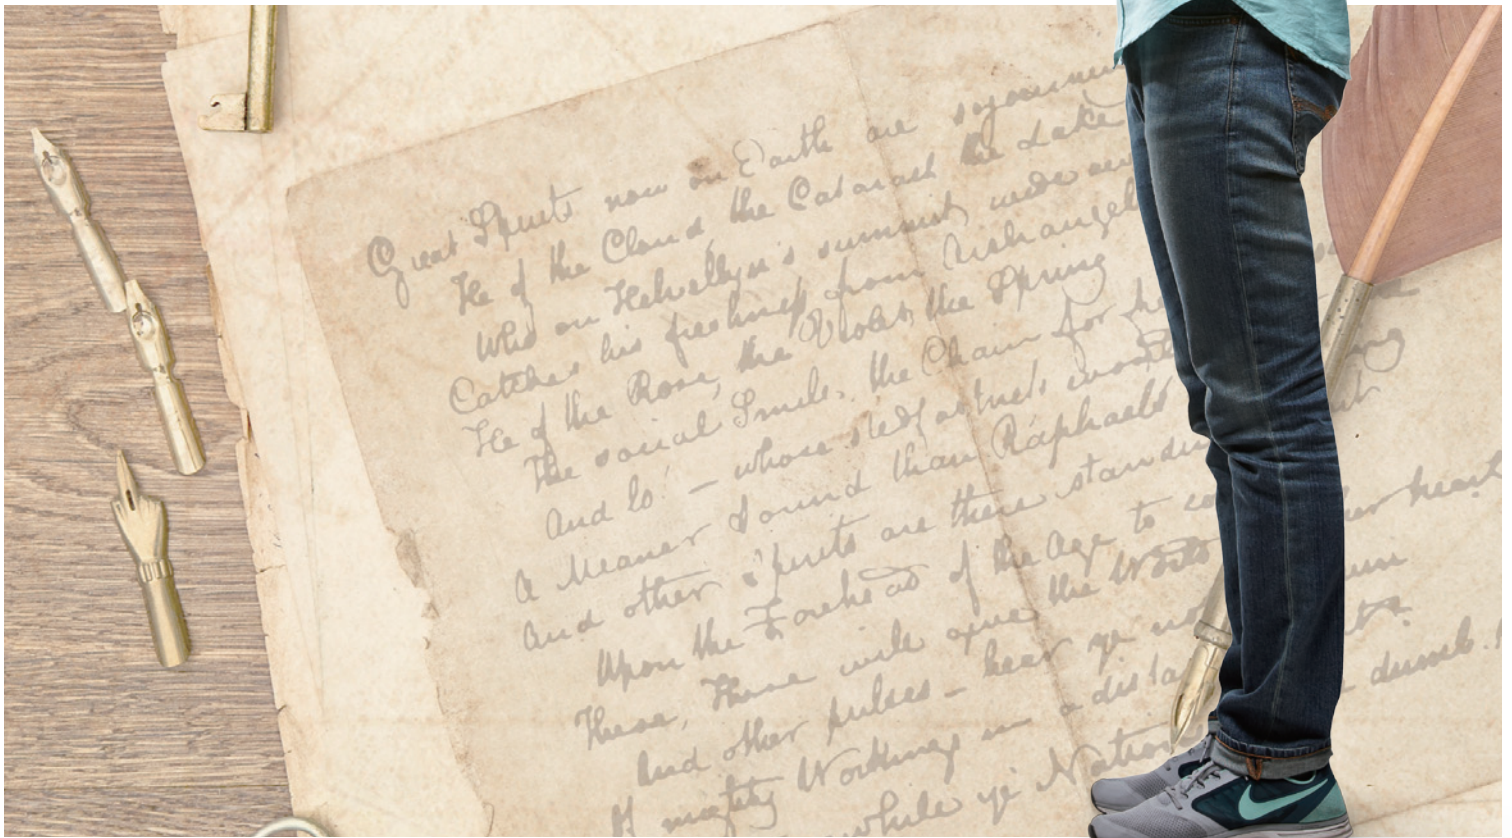 Great Spirits now on Earth are
He of the Cloud, the Cataract the Lake
Who on Helvellyn's summit wide
Catches his freshness from Archangel
He of the Rose, the Violet, the Spring
The social Smile, the Chain for
And lo! — whose stedfastness
A Meaner Sound than Raphaels
And other Spirits are there
Upon the Forehead of the Age to heart
These, These will give the World
And other pulses — hear ye
Of mighty Workings in a
while ye dumb.